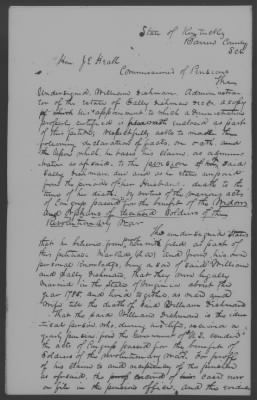 State of Kentucky
Barren County
Sct
Hon J E Heath
Commissioner of Pensions
The
Undersigned, William Dishman Administra
tor of the estate of Sally Dishman decd a copy
of his appointment to which administration
properly certified is enclosed as part
of this petition, respectfully asks to make the
following declaration of facts, on oath, and
the upon which he bases his claims, as adminis
trator as aforesaid, to the pension of said
Sally Dishman due and as he states unpaid
from the period of her husband's death to the
time of her death, by virtue of the several acts
of Congress passed for the benefit of the Widows
and Orphans of deceased Soldiers of the
Revolutionary War
The undersigned states
that he believes from, the with filed as part of
this petition marked and from his own
personal knowledge, being a son of said William
and Sally Dishman, that they were legally
married in the State of Virginia about this
year and lived together as man and
wife till the death of said William Dishman
That the said William Dishman is the iden
tical person who, during his life, received a
yearly pension from the Government of U.S. under
the acts of Congress passed for the benefit of
Soldiers of the revolutionary war. For proof
of his claims to and of the pension
as aforesaid, the record of his case now
on file in the pension office, and the evidence